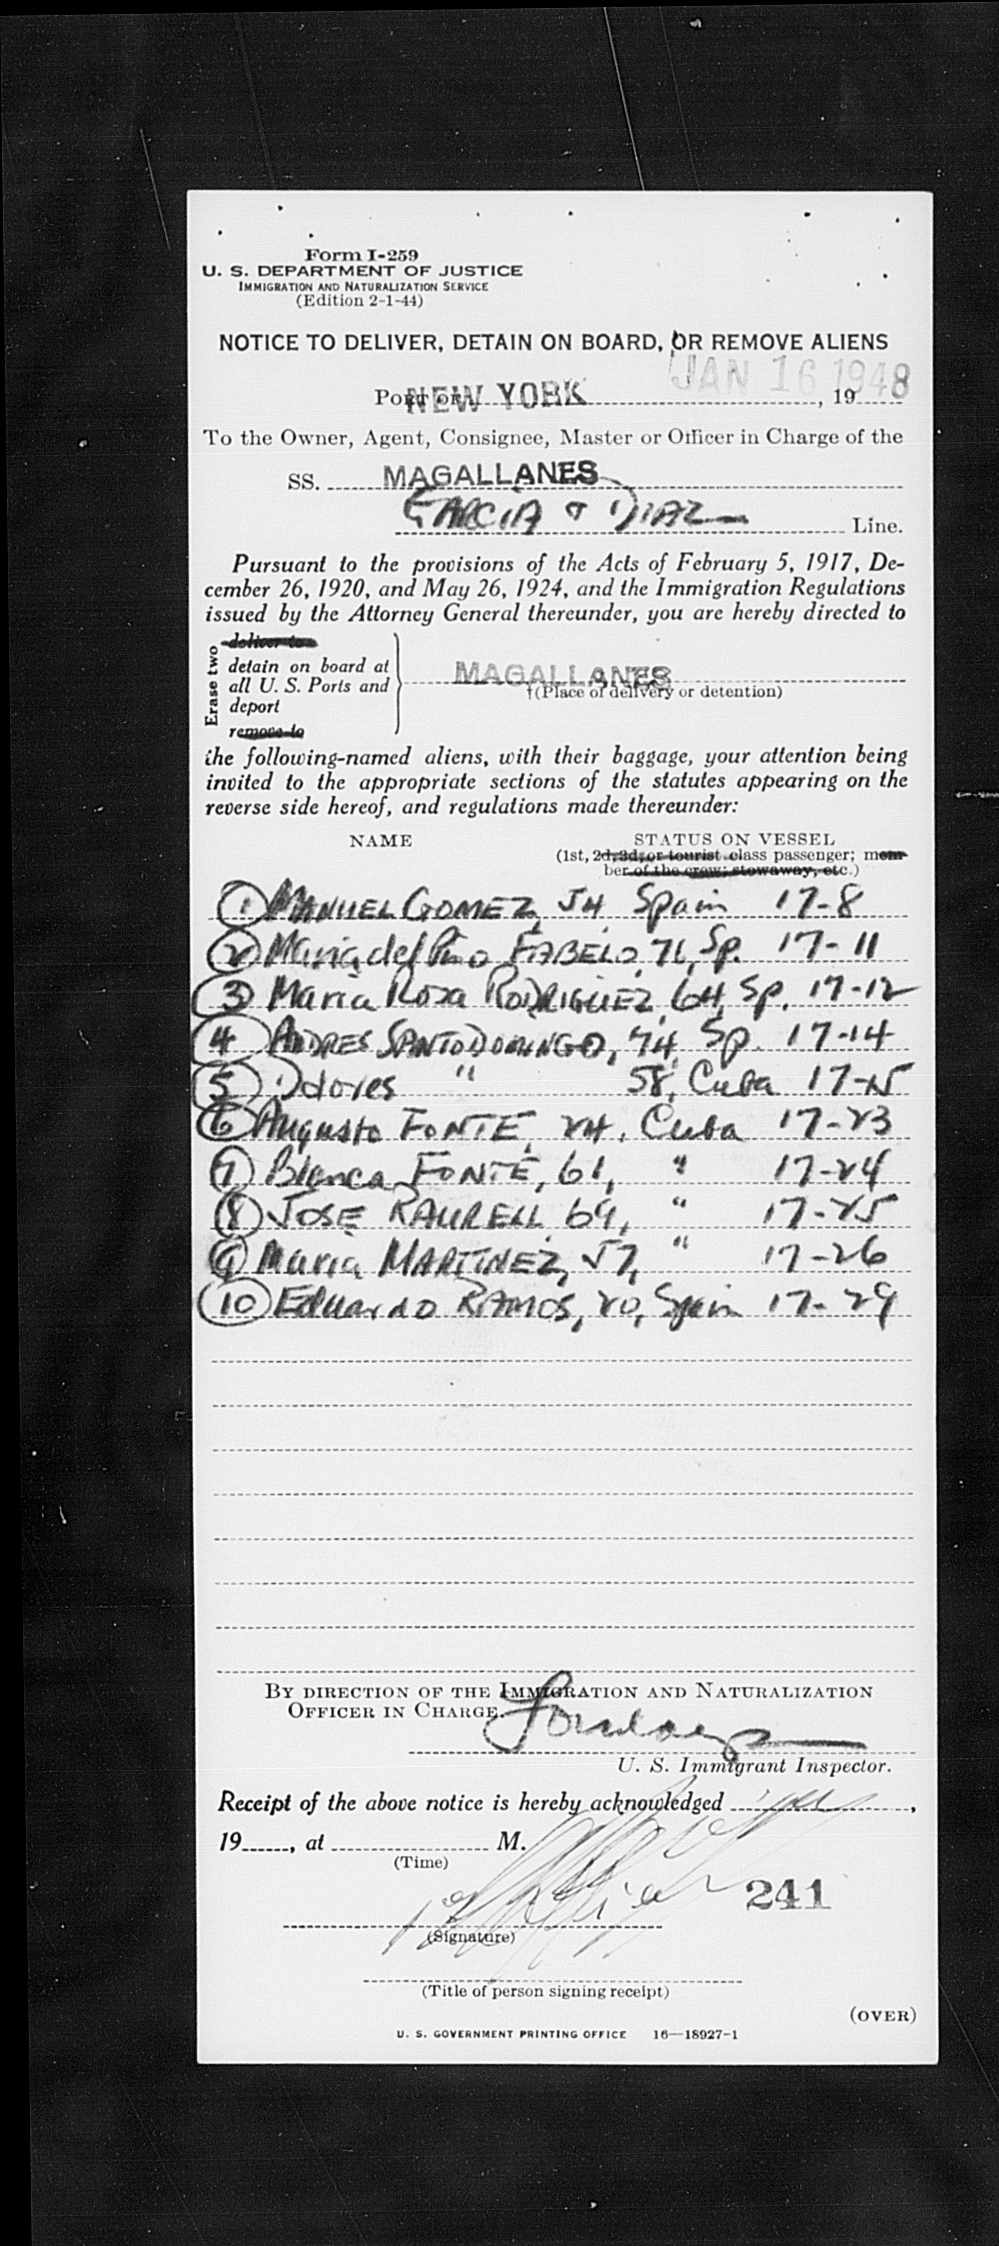 Form I-259
U. S. DEPARTMENT OF JUSTICE
IMMIGRATION AND NATURALIZATION SERVICE
(Edition 2-1-44)
NOTICE TO DELIVER, DETAIN ON BOARD, OR REMOVE ALIENS
JAN 16 1948
Port of NEW YORK, 19
To the Owner, Agent, Consignee, Master or Officer in Charge of the
SS. MAGALLANES
GARCIA & DIAZ Line.
Pursuant to the provisions of the Acts of February 5, 1917, De-
cember 26, 1920, and May 26, 1924, and the Immigration Regulations
issued by the Attorney General thereunder, you are hereby directed to
Erase two
deliver to
detain on board at
all U. S. Ports and
deport
remove to
MAGALLANES
†(Place of delivery or detention)
the following-named aliens, with their baggage, your attention being
invited to the appropriate sections of the statutes appearing on the
reverse side hereof, and regulations made thereunder:
NAME STATUS ON VESSEL
(1st, 2d, 3d, or tourist class passenger; mem-
ber of the crew; stowaway, etc.)
1 MANUEL GOMEZ, 54 Spain 17-8
2 Maria del Pino FABELO, 71, Sp. 17-11
3 Maria Rosa RODRIGUEZ, 64, Sp. 17-12
4 ANDRES SANTODOMINGO, 74, Sp. 17-14
5 Dolores " 58, Cuba 17-15
6 Augusto FONTE, 24, Cuba 17-23
7 Blanca FONTE, 61, " 17-24
8 JOSE RAURELL 69, " 17-25
9 Maria MARTINEZ, 57, " 17-26
10 Eduardo RAMOS, 20, Spain 17-29
BY DIRECTION OF THE IMMIGRATION AND NATURALIZATION
OFFICER IN CHARGE.
U. S. Immigrant Inspector.
Receipt of the above notice is hereby acknowledged ,
19 , at M.
(Time)
241
(Signature)
(Title of person signing receipt)
(OVER)
U. S. GOVERNMENT PRINTING OFFICE 16—18927-1